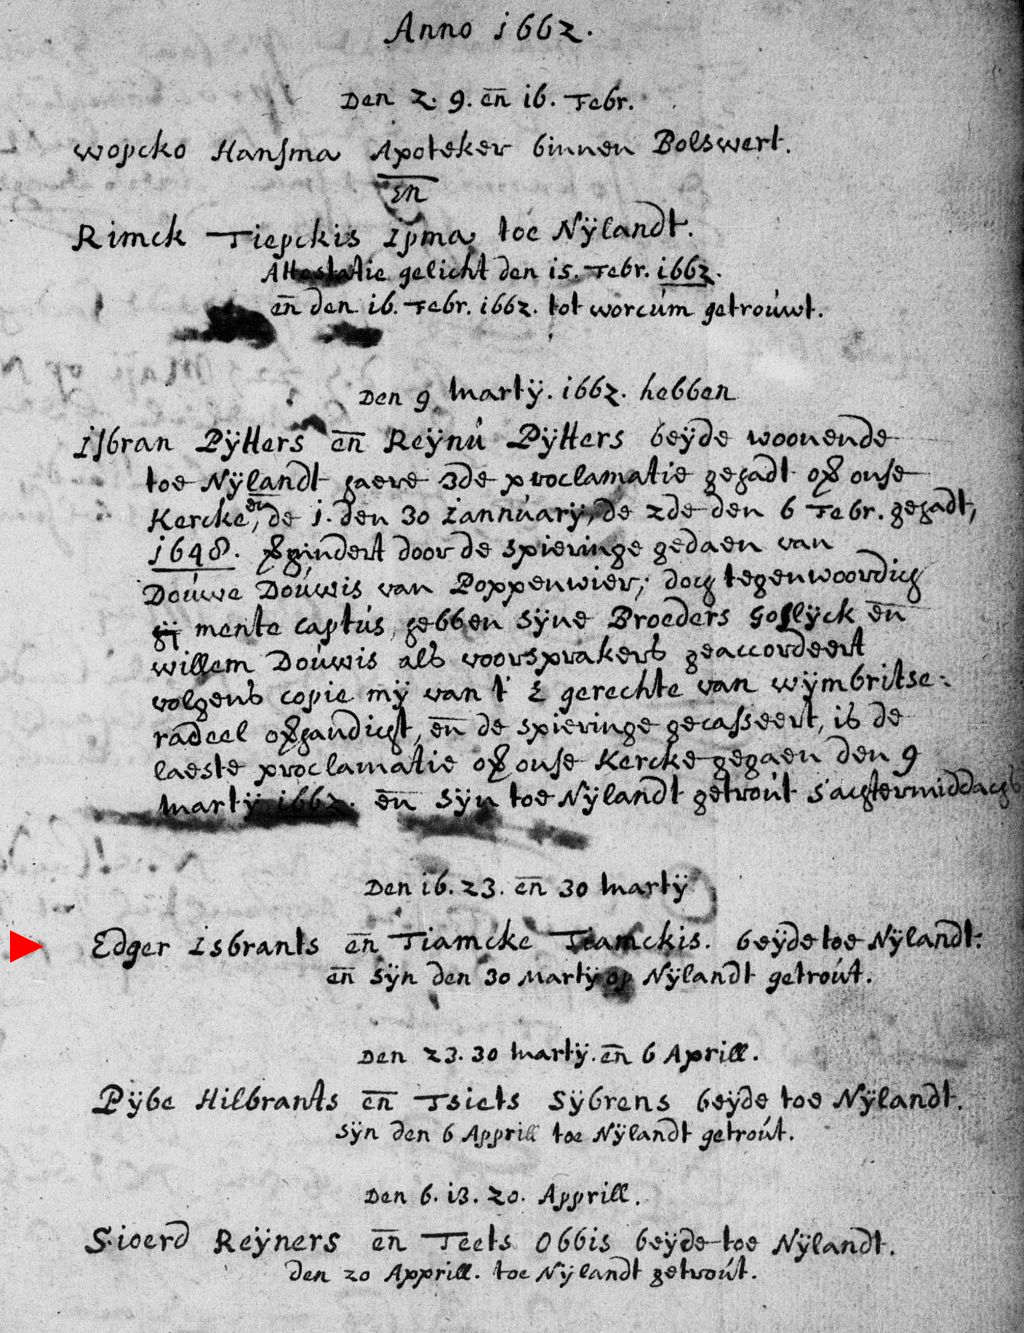 Anno 1662.
Den 2. 9. en̄ 16. Febr.
Wopcko Hansma Apoteker binnen Bolswert.
En
Rimck Tiepckis Ipma toe Nÿlandt.
Attestatie gelicht den 15. Febr. 1662.
en̄ den 16. Febr. 1662. tot worcúm getroúwt.
Den 9 Martÿ. 1662. hebben
Isbran Pÿtters en̄ Reÿnú Pÿtters beÿde woonende
toe Nÿlandt haere 3de proclamatie gehadt op onse
Kercke, en de 1. den 30 Iannúarÿ, de 2de den 6 Febr. gehadt,
1648. gehindert door de spieringe gedaen van
Doúwe Doúwis van Poppenwier; doch tegenwoordich
mente captús, hebben sÿne Broeders Goslÿck en̄
willem Doúwis als voorsprakers geaccordeert
volgens copie mÿ van 't gerechte van wÿmbritse-
radeel ophandicht, en̄ de spieringe gecasseert, is de
laeste proclamatie op onse Kercke gegaen den 9
Martÿ 1662. en̄ sÿn toe Nÿlandt getroút s'achtermiddachs
Den 16. 23. en̄ 30 Martÿ
Edger Isbrants en̄ Tiamcke Tiamckis. beÿde toe Nÿlandt:
en̄ sÿn den 30 Martÿ op Nÿlandt getroút.
Den 23. 30 Martÿ. en̄ 6 Aprill.
Pÿbe Hilbrants en̄ Tsiets Sÿbrens beÿde toe Nÿlandt.
sÿn den 6 Apprill toe Nÿlandt getroút.
Den 6. 13. 20. Apprill.
Sioerd Reÿners en̄ Teets Obbis beÿde toe Nÿlandt.
den 20 Apprill. toe Nÿlandt getroút.